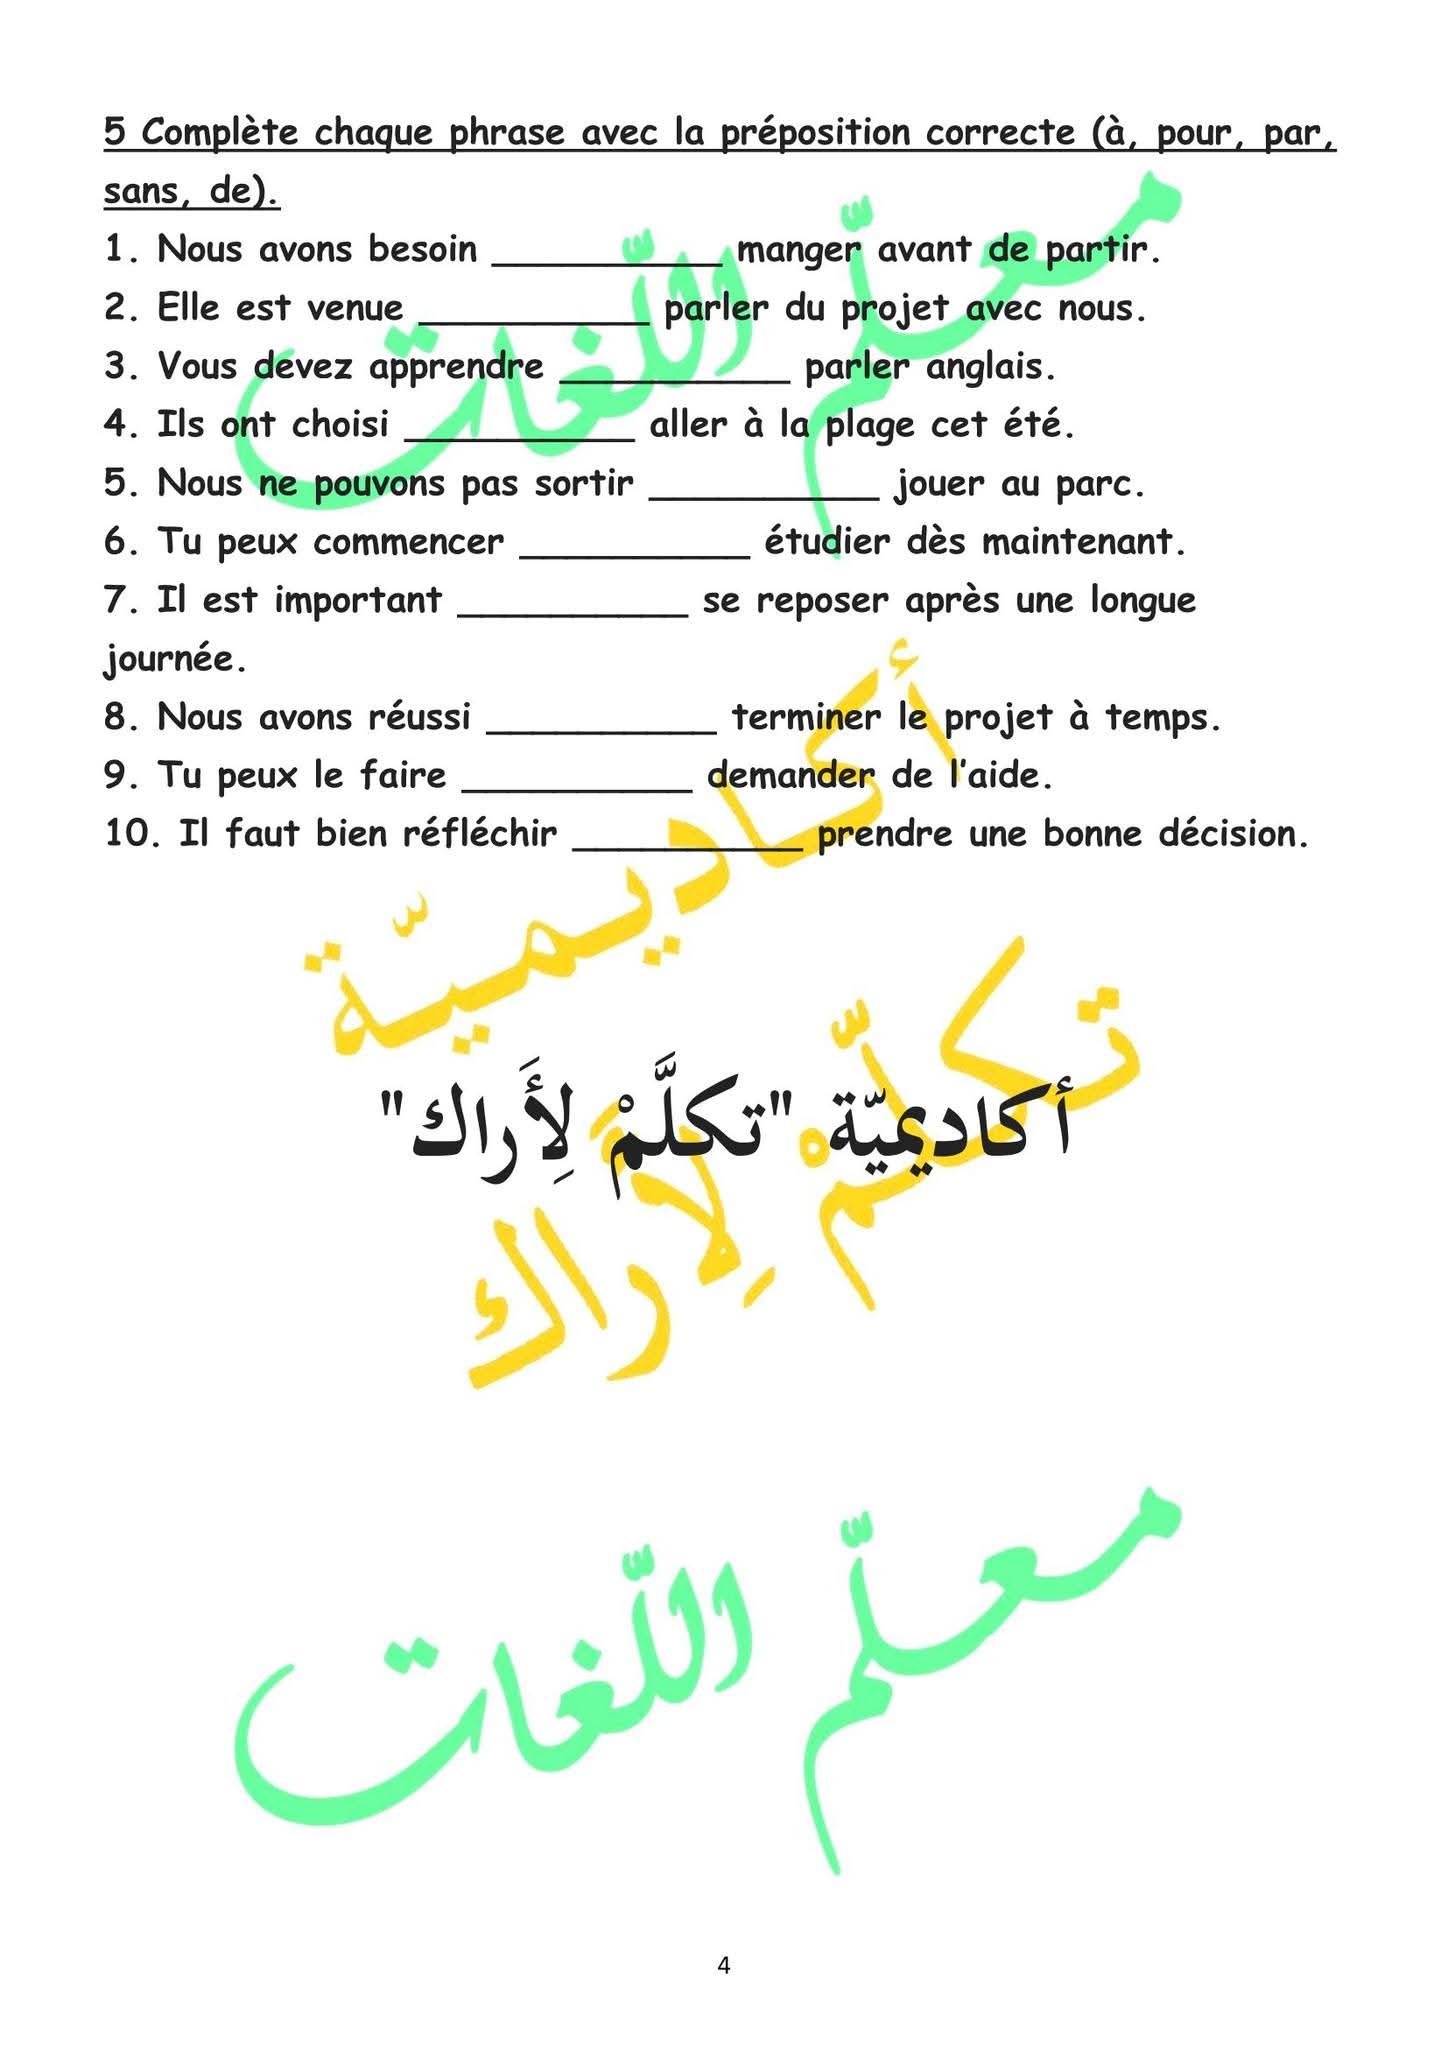 5 Complète chaque phrase avec la préposition correcte (à, pour, par,
sans, de).
1. Nous avons besoin ___________ manger avant de partir.
2. Elle est venue ___________ parler du projet avec nous.
3. Vous devez apprendre ___________ parler anglais.
4. Ils ont choisi ___________ aller à la plage cet été.
5. Nous ne pouvons pas sortir ___________ jouer au parc.
6. Tu peux commencer ___________ étudier dès maintenant.
7. Il est important ___________ se reposer après une longue
journée.
8. Nous avons réussi ___________ terminer le projet à temps.
9. Tu peux le faire ___________ demander de l'aide.
10. Il faut bien réfléchir ___________ prendre une bonne décision.
معلّم اللّغات
أكاديميّة
تكلّمْ لِأَراك
أكاديميّة "تكلَّمْ لِأَراك"
معلّم اللّغات
4